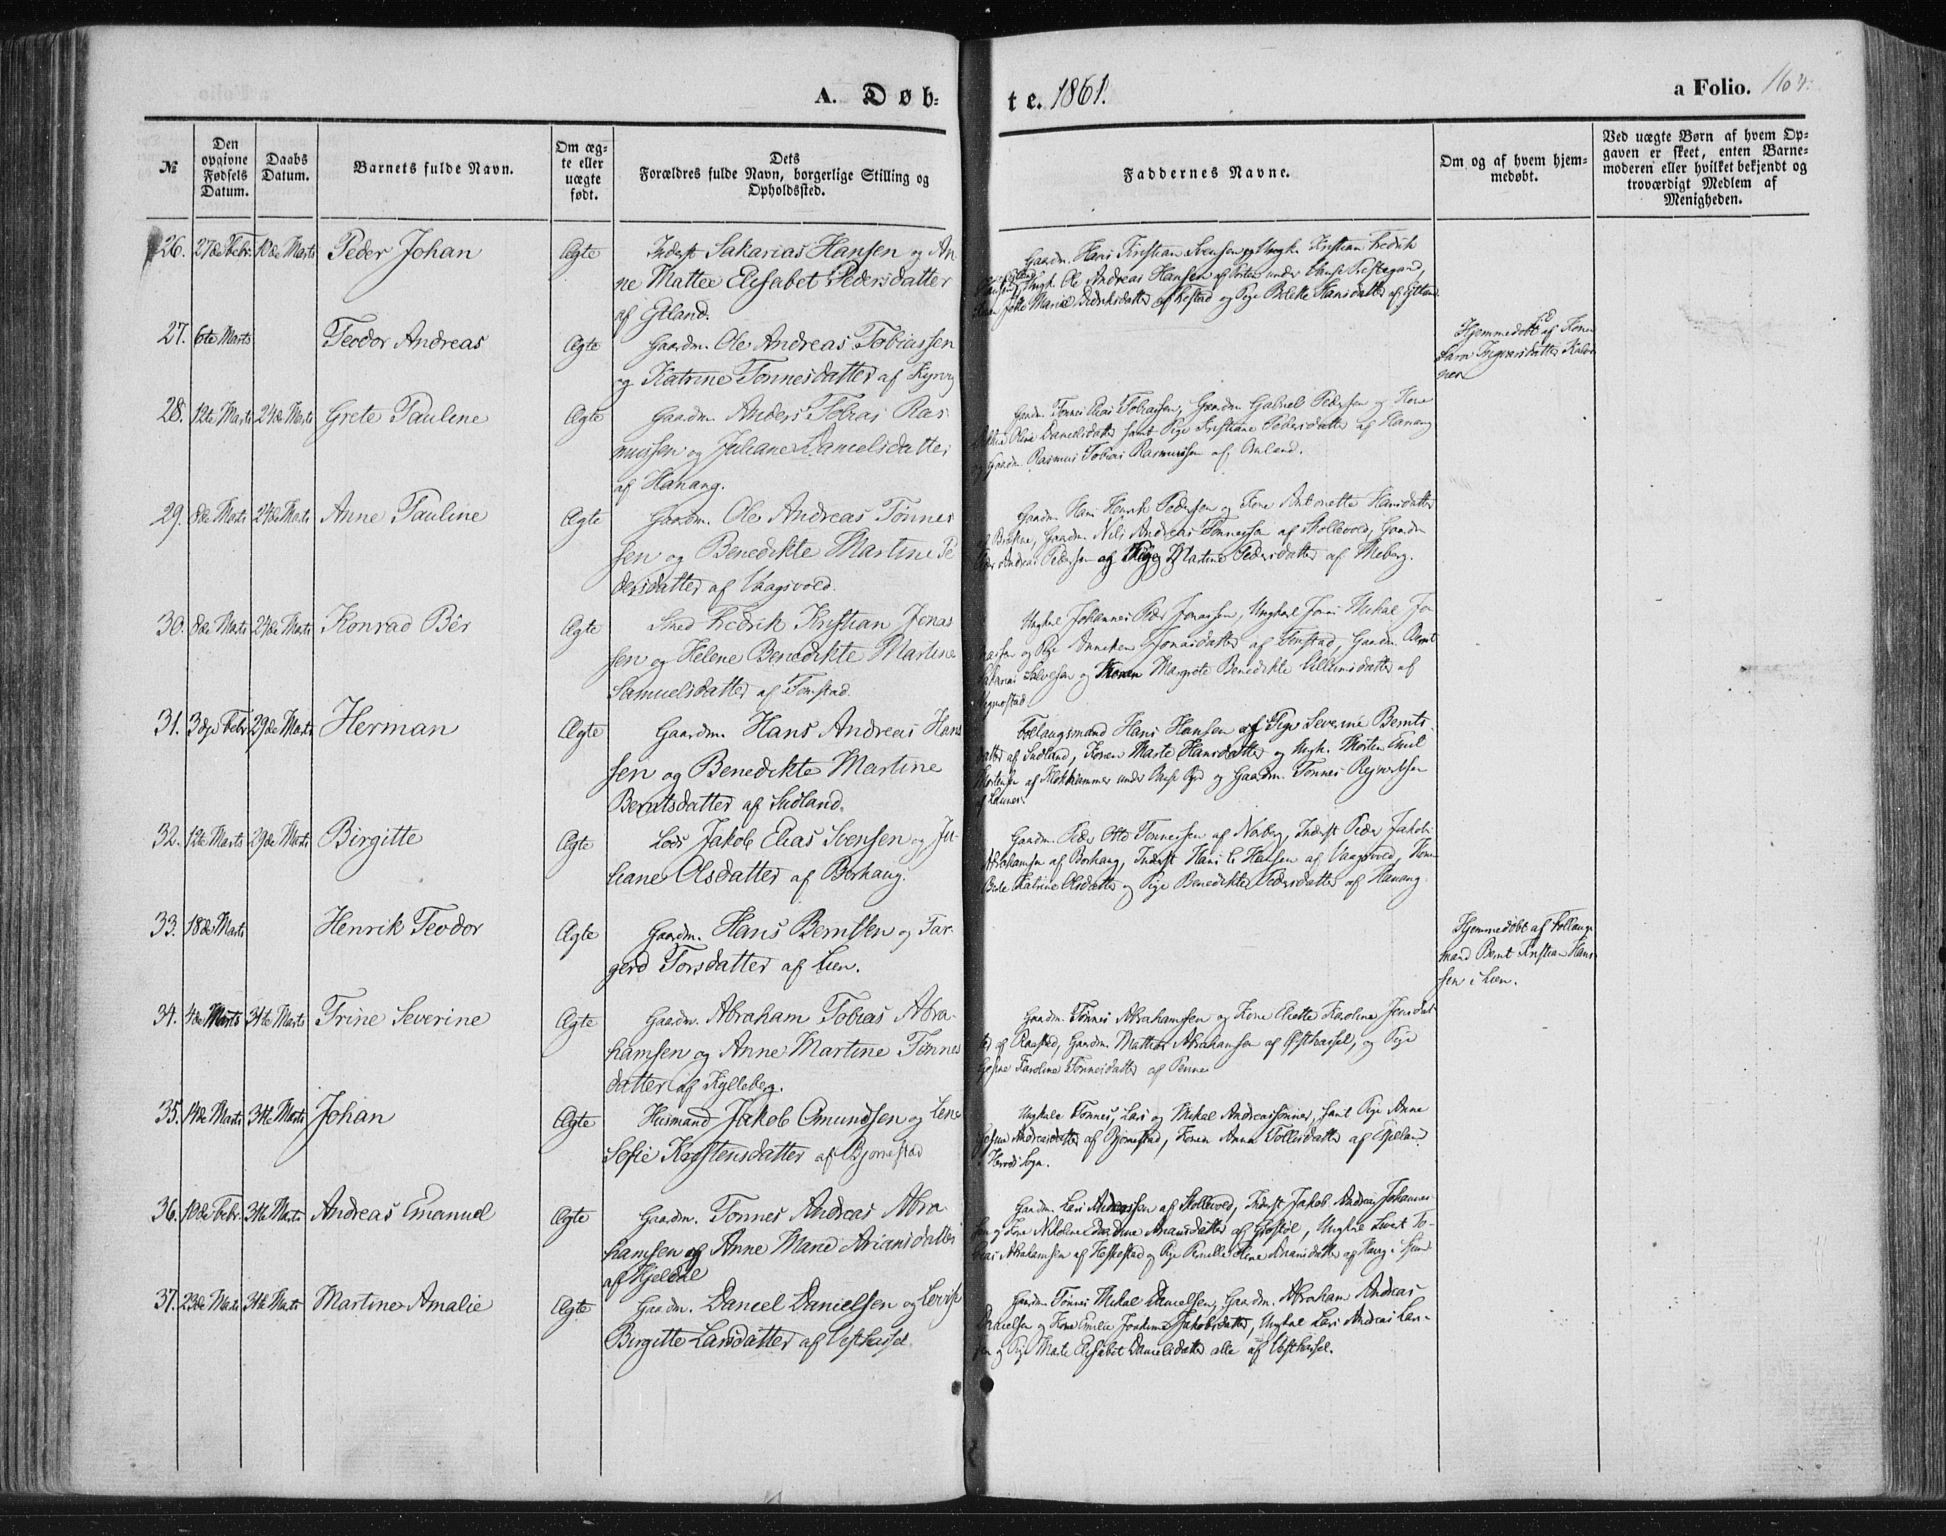 A. Døb-
te. 1861.
a Folio. 164.
№
Den opgivne Fødsels Datum.
Daabs Datum.
Barnets fulde Navn.
Om ægte eller uægte født.
Dets Forældres fulde Navn, borgerlige Stilling og Opholdssted.
Faddernes Navne.
Om og af hvem hjemmedøbt.
Ved uægte Børn af hvem Opgaven er skeet, enten Barnemoderen eller hvilket bekjendt og troværdigt Medlem af Menigheden.
26. 27de Febr. 10de Marts Peder Johan Ægte Inderst Sakarias Hansen og An-
ne Mattee Elisabet Pedersdatter
af Gtland.
Gaardm. Hans Kristian Svensen og Ungk. Kristian Fredrik
Ungk. Ole Andreas Hansen af under Vanse Prestegaard,
Marie Didriksdatter af og Pige Belette Hansdatter af
27. 6te Marts Teodor Andreas Ægte Gaardm. Ole Andreas Tobiassen
og Katrine Tønnesdatter af
Hjemmedøbt af Kone
Sara
28. 12te Marts 24de Marts Grete Pauline Ægte Gaardm. Anders Tobias Ras-
mussen og Juliane Danielsdatter
af Hanang.
Gaardm. Tønnes Elias Tobiassen, Gaardm. Gabriel Pedersen og Kone
Oline Danielsdatter samt Pige Kristiane Pedersdatter af Hanang
og Gaardm. Rasmus Tobias Rasmussen af Omland.
29. 8de Marts 24de Marts Anne Pauline Ægte Gaardm. Ole Andreas Tønnes-
sen og Benedikte Martine Pe-
dersdatter af Vaagsvold.
Gaardm. Hans Henrik Pedersen og Kone Antonette Hansdatter
af Brekne, Gaardm. Nils Andreas Tønnessen af Stollevold, Gaardm.
Peder Andreas Pedersen og Pige Martine Pedersdatter af Meberg.
30. 8de Marts 24de Marts Konrad Bêr Ægte Smed Fredrik Kristian Jonas-
sen og Helene Benedikte Martine
Samuelsdatter af Tomstad.
Ungkarl Johannes Peder Jonassen, Ungkarl Jonas Mikal Jo-
nassen og Pige Anneken Jonasdatter af Tomstad, Gaardm. Bernt
Salvesen og Konen Margrete Benedikte Villumsdatter af
31. 3die Febr. 29de Marts Herman Ægte Gaardm. Hans Andreas Han-
sen og Benedikte Martine
Berntsdatter af Sudland.
Follaugsmand Hans Hansen af Pige Severine Bernts-
datter af Sudland, Konen Marte Hansdatter og Ungk. Morten Emil
Mortensen af Klokhammer under Vanse og Gaardm. Tønnes Reinertsen
32. 12te Marts 29de Marts Birgitte Ægte Lods Jakob Elias Svensen og Ju-
liane Olsdatter af Borhaug.
Gaardm. Peder Otto Tønnessen af Norberg, Inderst Peder Jakob
Abrahamsen af Borhaug, Inderst Hans C. Hansen af Vaagsvold, Kone
Berte Katrine Olsdatter og Pige Benedikte Pedersdatter af Hanang.
33. 18de Marts Henrik Teodor Ægte Gaardm. Hans Berntsen og Tar-
gerd Torsdatter af Lien.
Hjemmedøbt af Follaugs-
mand Bernt Kristian Han-
sen i Lien.
34. 4de Marts 31te Marts Trine Severine Ægte Gaardm. Abraham Tobias Abra-
hamsen og Anne Martine Tønnes-
datter af Kylleberg.
Gaardm. Tønnes Abrahamsen og Kone Eliette Karoline Jensdat-
ter af Raastad, Gaardm. Mathias Abrahamsen af Østhassel, og Pige
Karoline Tønnesdatter af Penne
35. 14de Marts 31te Marts Johan Ægte Husmand Jakob Omundsen og Lene
Sofie Kristensdatter af Bjørnestad
Ungkarle Tønnes, Lars og Mikal Andreassønner, samt Pige Anne
Gosine Andreasdatter af Bjørnestad, Konen Anne Tollisdatter af
Herreds Sogn.
36. 10de Febr. 31te Marts Andreas Emanuel Ægte Gaardm. Tønnes Andreas Abra-
hamsen og Anne Marie Ariansdatter
af Hjeldal
Gaardm. Lars Andreassen af Stollevold, Inderst Jakob Andreas Johannes-
sen og Kone Ariansdatter af Ungkarl Sivert To-
bias Abrahamsen af Heskestad og Pige Pernille Lene Ariansdatter af Haug i
37. 23de Marts 31te Marts Martine Amalie Ægte Gaardm. Daniel Danielsen og Lovise
Birgitte Larsdatter af Vesthassel.
Gaardm. Tønnes Mikal Danielsen, Gaardm. Abraham Andreas
Danielsen og Kone Emilie Jakobsdatter, Ungkarl Lars Andreas Lar-
sen og Pige Marte Elisabet Danielsdatter alle af Vesthassel.